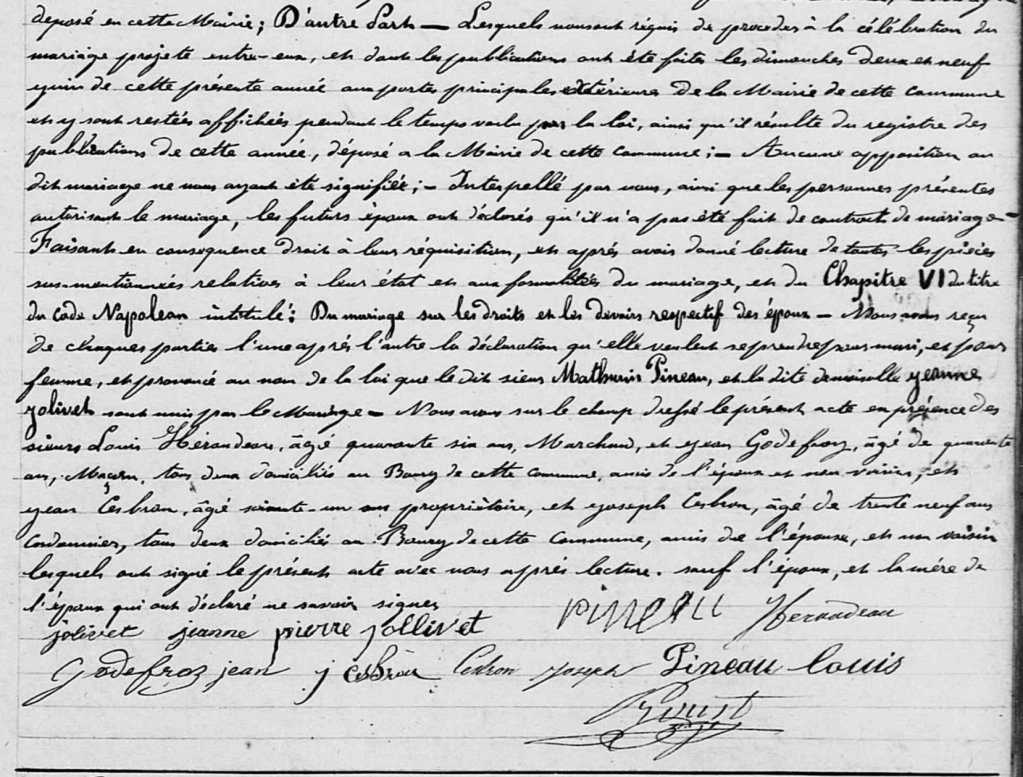 déposé en cette Mairie; D'autre Part — Lesquels nous ont réquis de procéder à la célébration du
mariage projeté entre-eux, et dont les publications ont été faites les dimanches deux et neuf
yuin de cette présente année aux portes principales extérieures de la Mairie de cette commune
et y sont restés affichées pendant le temps voulu par la loi, ainsi qu'il résulte du registre des
publications de cette année, déposé a la Mairie de cette commune; — Aucune opposition au
dit mariage ne nous ayant été signifiée; — Interpellé par nous, ainsi que les personnes présentes
autorisant le mariage, les futurs époux ont déclarés qu'il n'a pas été fait de contrat de mariage —
Faisant en conséquence droit à leur réquisition, et après avoir donné lecture de toutes les pièces
sus-mentionnées relatives à leur état et aux formalités du mariage, et du Chapitre VI du titre
du Code Napoléon intitulé: Du mariage sur les droits et les devoirs respectif des époux — Nous avons reçu
de chaques parties l'une après l'autre la déclaration qu'elle veulent se prendre pour mari, et pour
femme, et prononcé au nom de la loi que le dit sieur Mathurin Pineau, et la dite demoiselle yeanne
yolivet sont unis par le Mariage — Nous avons sur le champ dressé le présent acte en présence des
sieurs Louis Heraudeau, âgé quarante six ans, Marchand, et yean Godefroy, âgé de quarante
ans, Maçon, tous deux domiciliés au Bourg de cette Commune, amis de l'époux et non voisins, et
yean Cesbron, âgé soixante-un ans propriètaire, et yoseph Cesbron, âgé de trente neuf ans
Cordonnier, tous deux domiciliés au Bourg de cette Commune, amis de l'épouse, et non voisin
lesquels ont signé le présent acte avec nous après lecture. sauf l'époux, et la mére de
l'époux qui ont déclaré ne savoir signer
jolivet jeanne pierre jollivet PINEAU Heraudeau
Godefroz jean j Cesbron Cesbron Joseph Pineau Louis